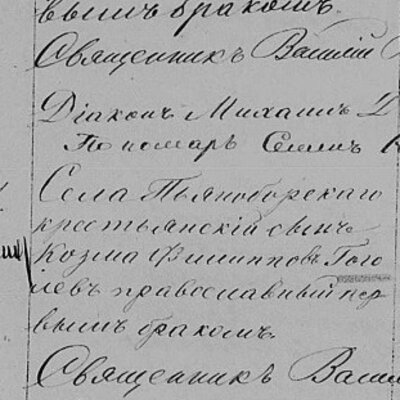 вымъ бракомъ.
Священникъ Василiй
Дiаконъ Михаилъ
Пономарь Семенъ
Села Тьяноборскаго
крестьянскiй сынъ
Козма Филипповъ Гого
левъ православный пер
вымъ бракомъ.
Священникъ Васил